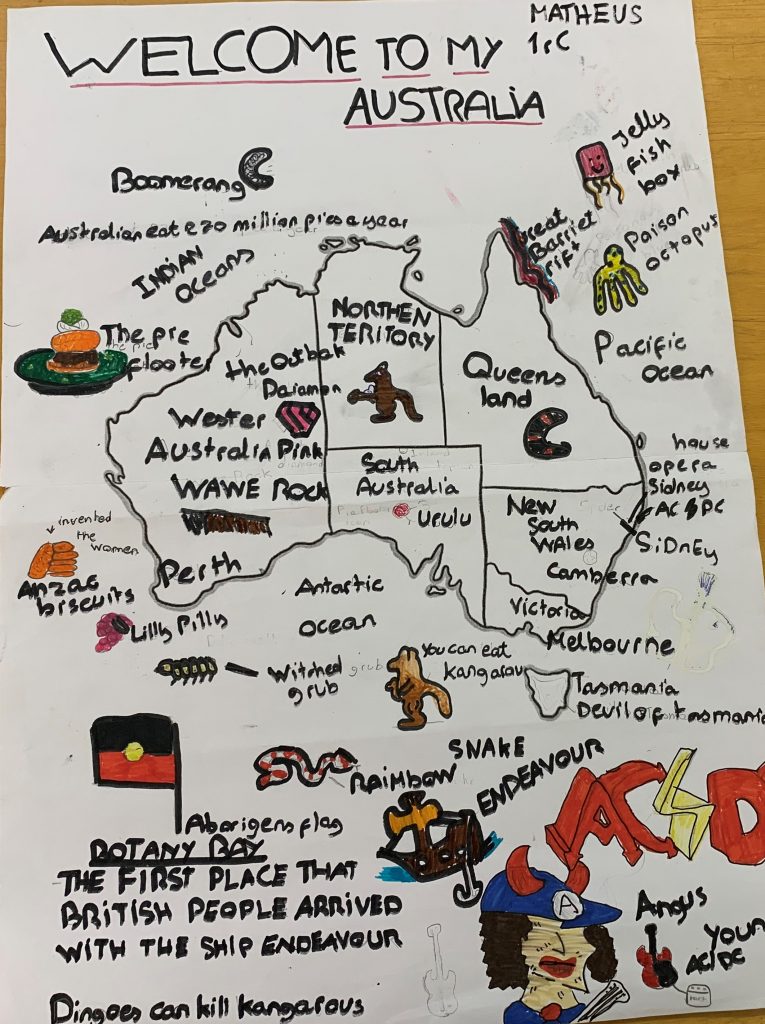 MATHEUS
1rC
WELCOME TO MY
AUSTRALIA
Boomerang
Jelly
fish
box
Australian eat 270 million pies a year
INDIAN
OCEANS
Great
Barriet
rift
Paison
octopus
The pie
floater
NORTHEN
TERITORY
Pacific
ocean
the Outbak
Daiamon
Wester
Australia Pink
WAWE ROCK
Queens
land
South
Australia
Urulu
house
opera
Sidney
AC DC
SiDnEy
New
South
WAles
Camberra
invented
the women
Anzac
biscuits
Perth
Antartic
ocean
Victoria
Melbourne
Lilly Pilly
Witched
grub
You can eat
kangarou
Tasmania
Devil of tasmania
SNAKE
RAIMBOW
ENDEAVOUR
Aborigens flag
BOTANY BAY
THE FIRST PLACE THAT
BRITISH PEOPLE ARRIVED
WITH THE SHIP ENDEAVOUR
Dingoes can kill kangarous
AC D
A
Angus
Youn
AC/DC